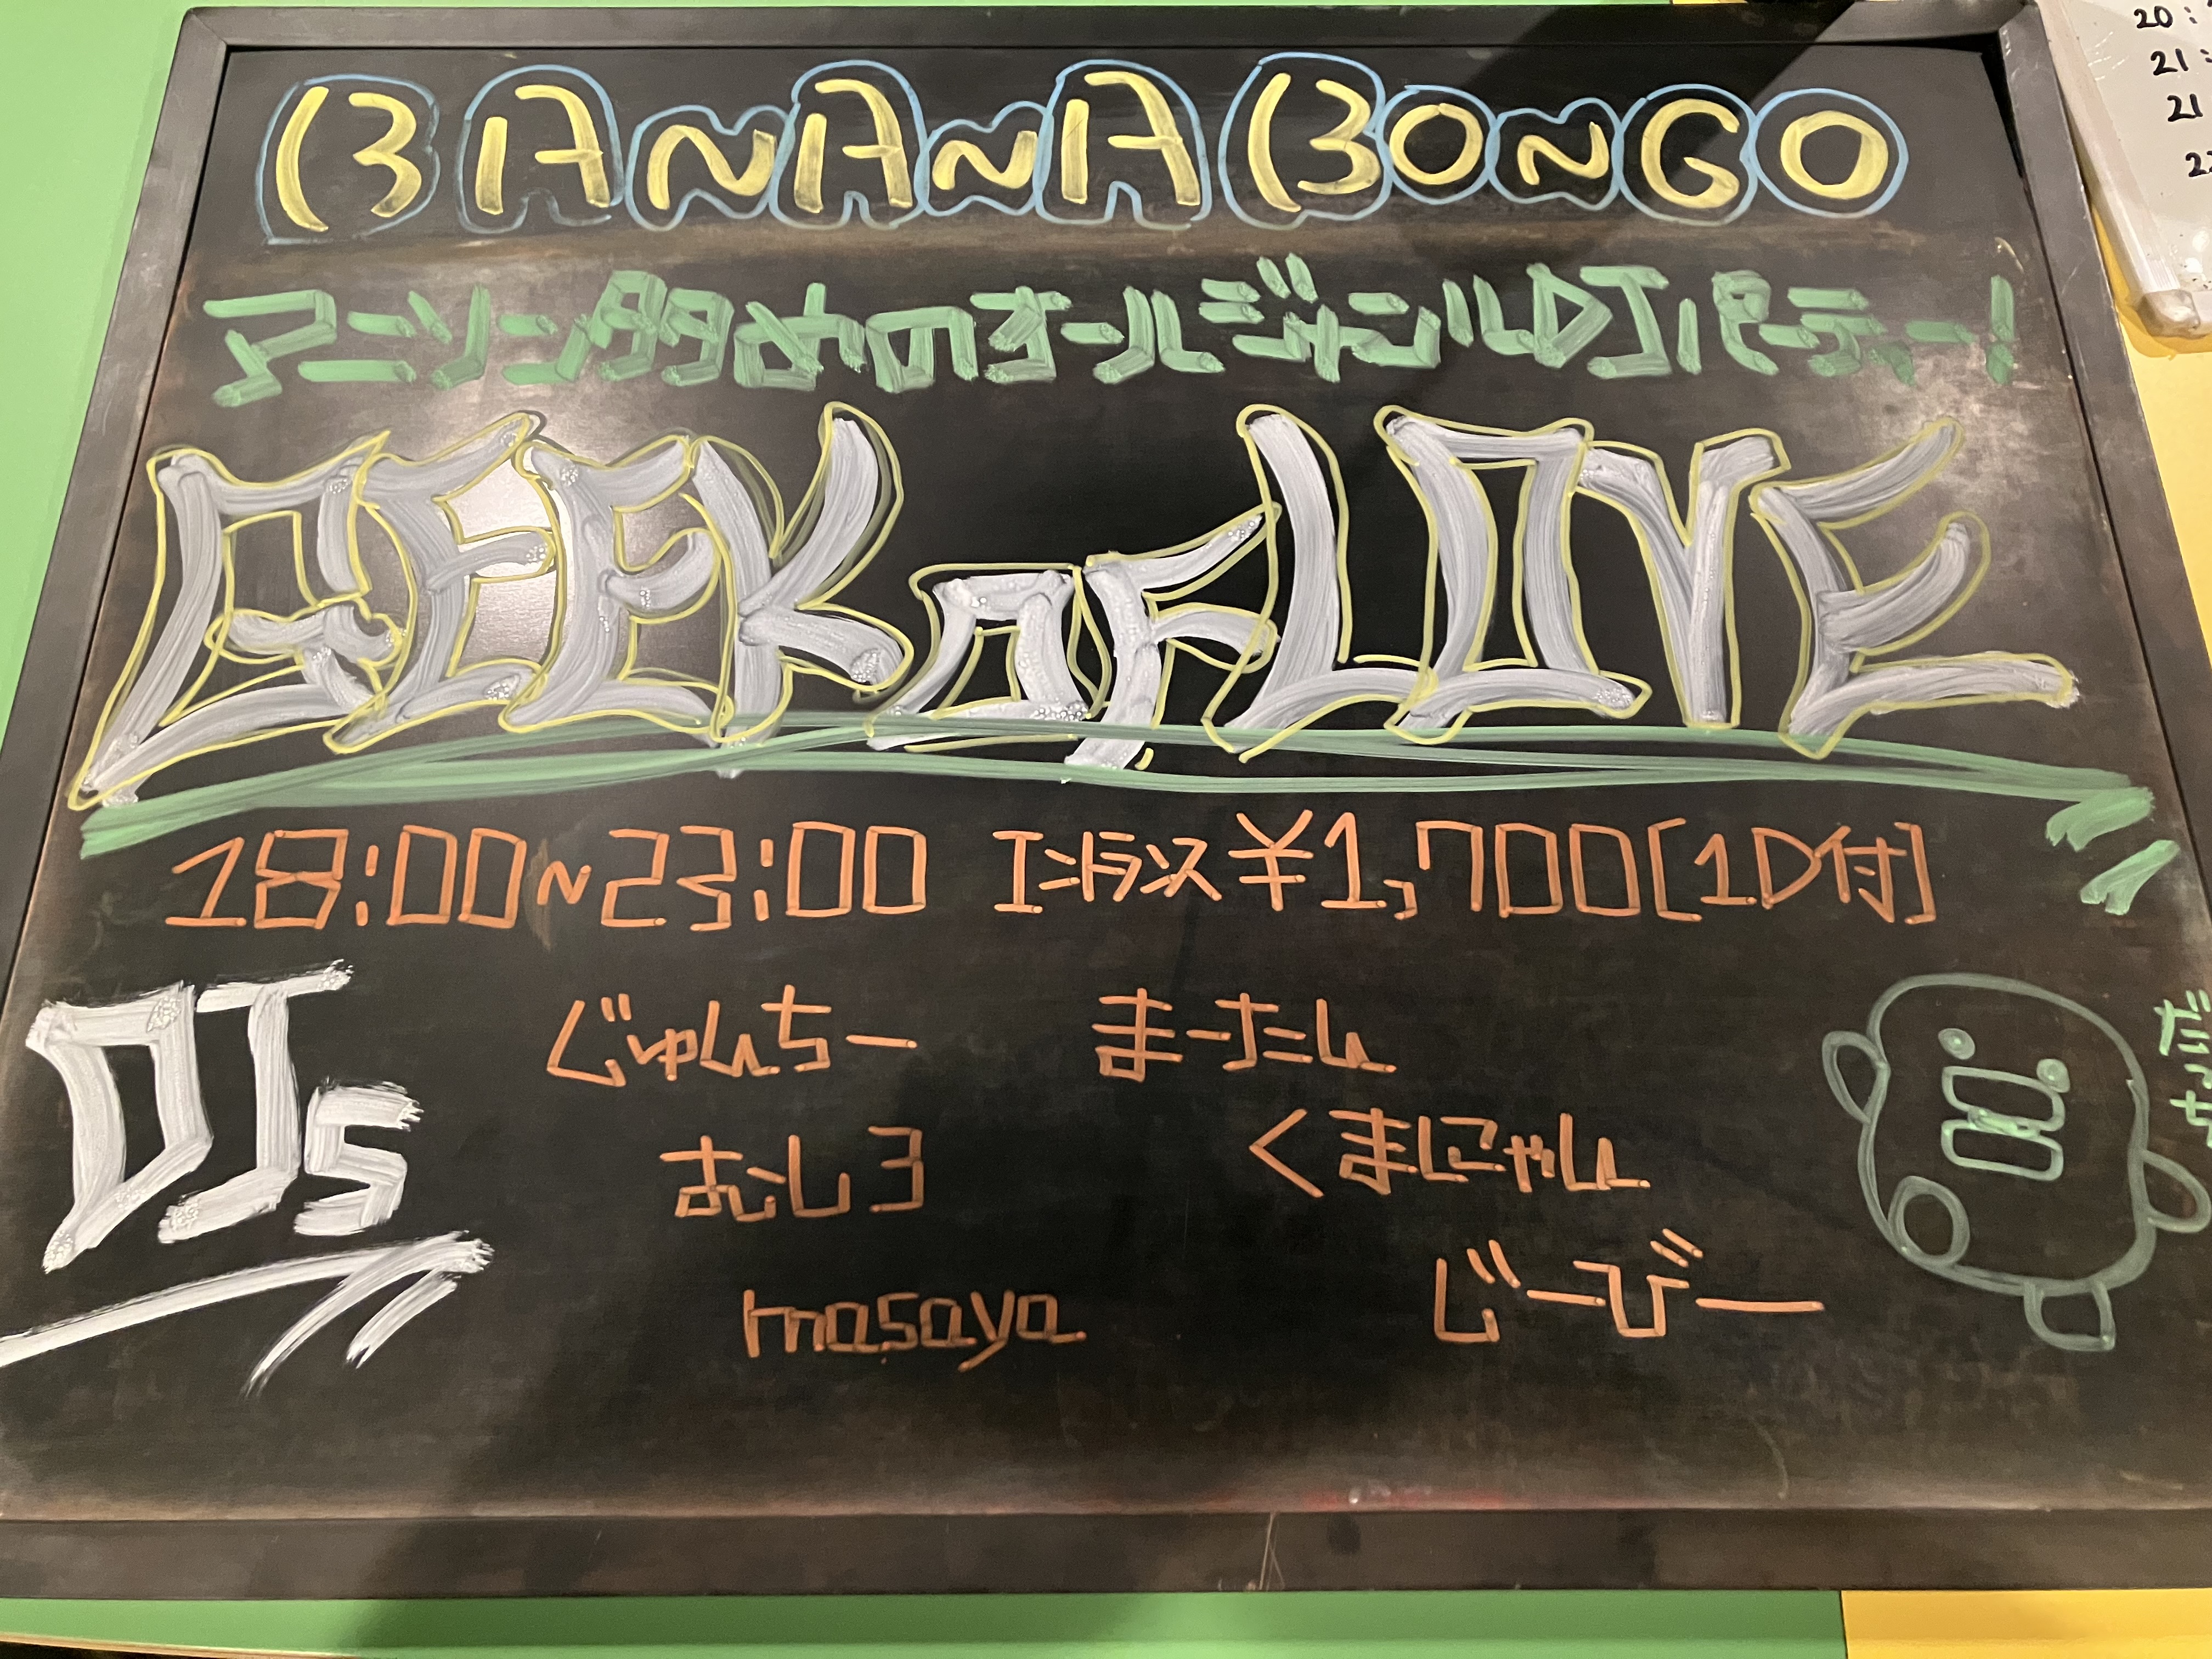 BANANA BONGO
アニソン多めのオールジャンルDJパーティー!
GEEK OF LOVE
18:00~23:00 エントランス ¥1,700[1D付]
DJs
じゅんちー まーたん
むし3 くまにゃん
masaya じーびー
20:
21:
21